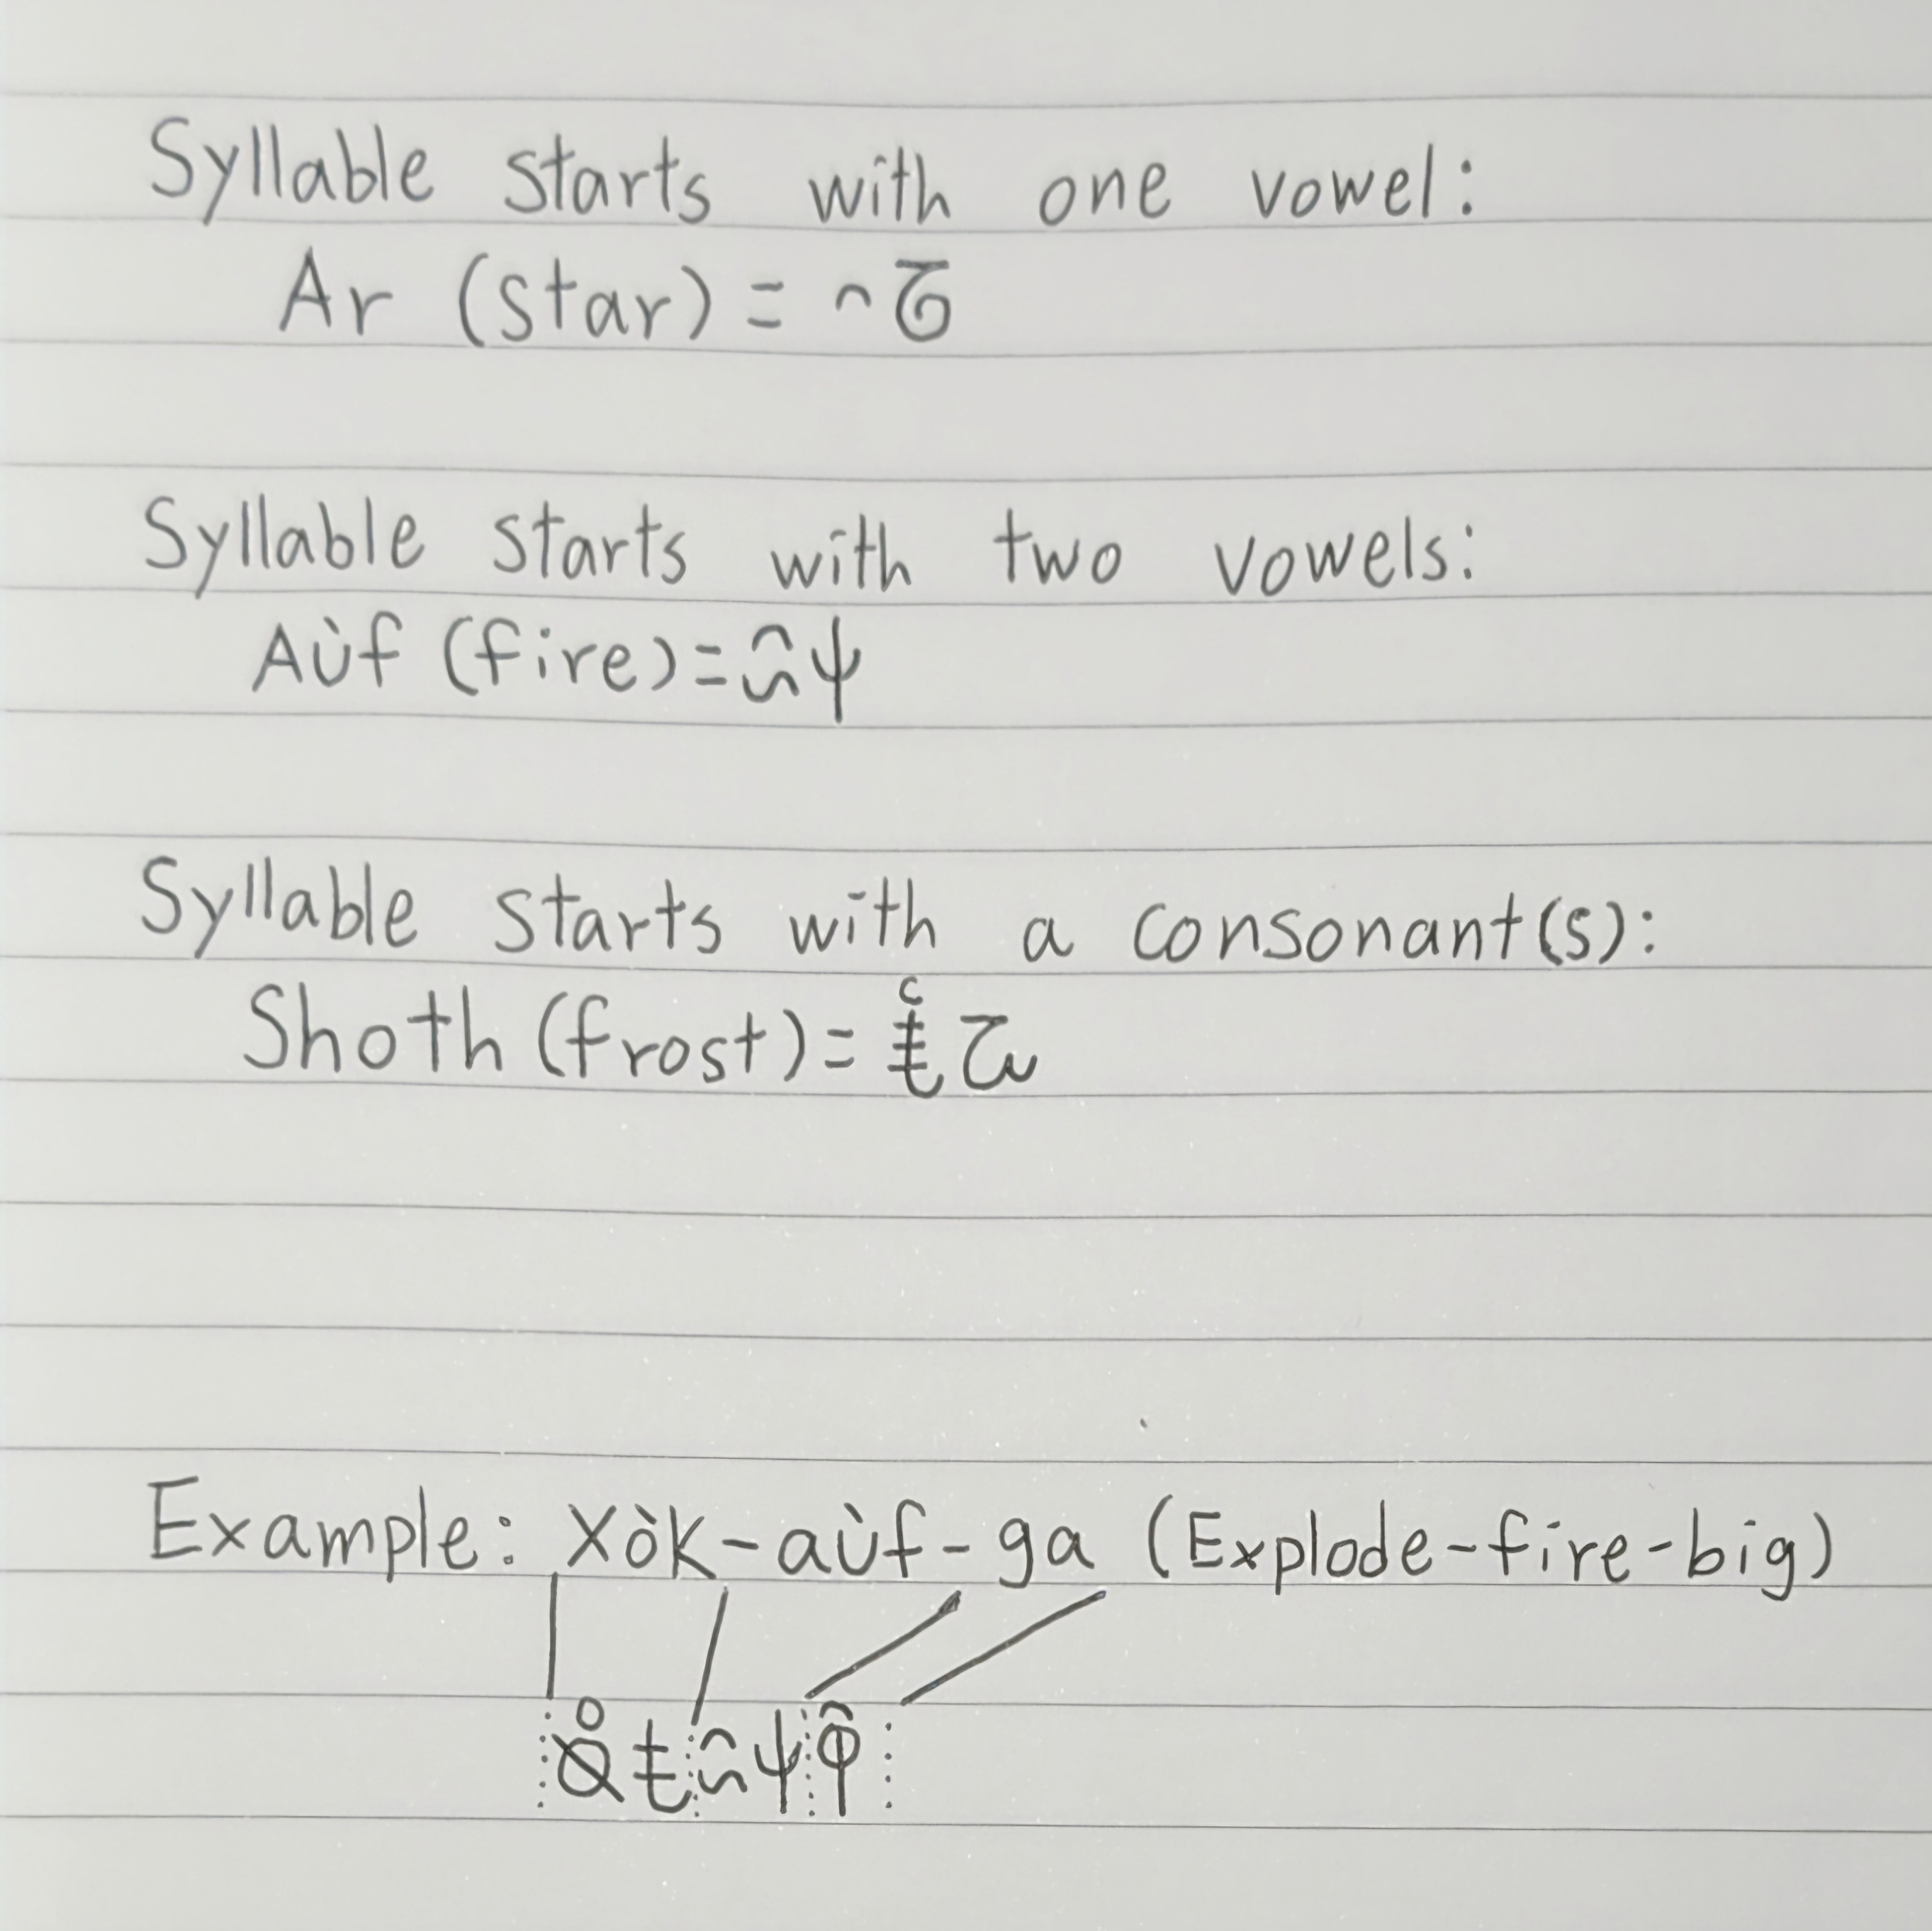 Syllable starts with one vowel:
Ar (star) =
Syllable starts with two vowels:
Aùf (fire) =
Syllable starts with a consonant(s):
Shoth (frost) =
Example: Xòk-aùf-ga (Explode-fire-big)